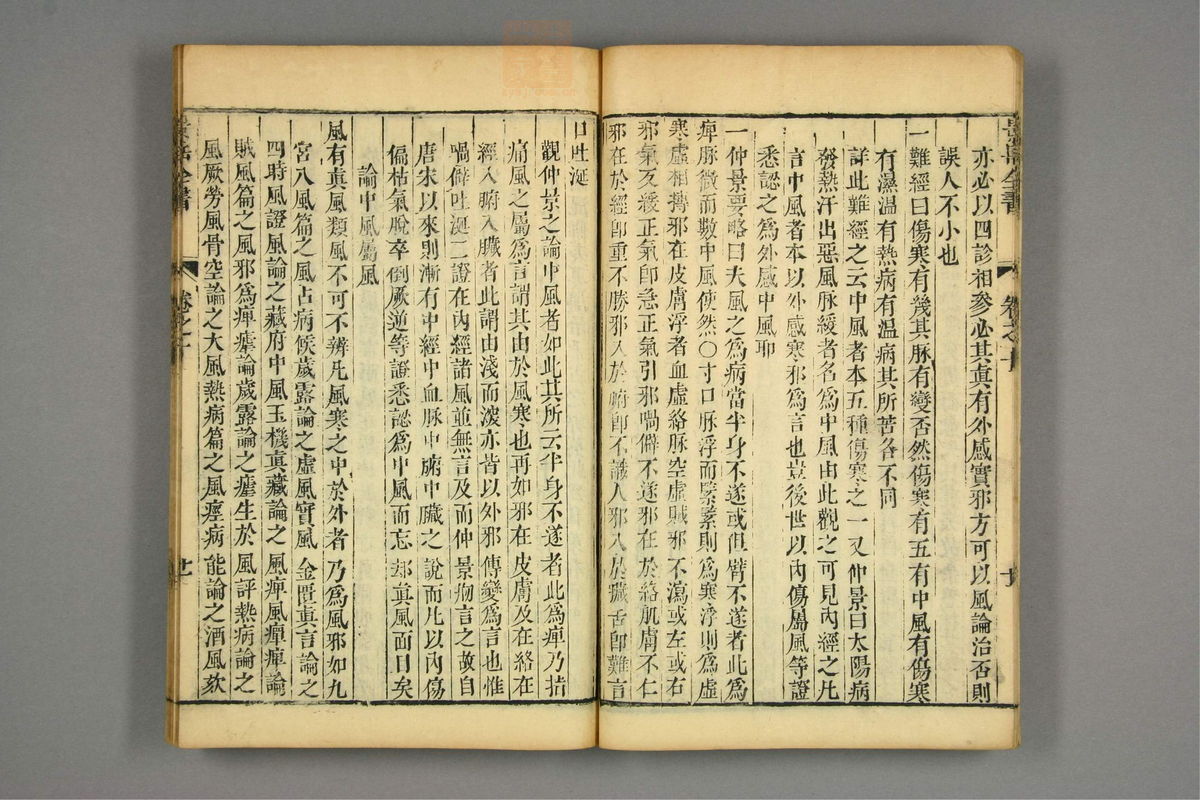 亦必以四診相參必其真有外感實邪方可以風論治否則
誤人不小也
一難經曰傷寒有幾其脉有變否然傷寒有五有中風有傷寒
有濕溫有熱病有温病其所苦各不同
詳此難經之云中風者本五種傷寒之一又仲景曰太陽病
發熱汗出惡風脉緩者名為中風由此觀之可見內經之凡
言中風者本以外感寒邪為言也豈後世以內傷屬風等證
悉認之為外感中風耶
一仲景要略曰夫風之為病當半身不遂或但臂不遂者此為
痺脉微而數中風使然○寸口脉浮而緊緊則為寒浮則為虛
寒虛相摶邪在皮膚浮者血虛絡脉空虛賊邪不瀉或左或右
邪氣反緩正氣卽急正氣引邪喎僻不遂邪在於絡肌膚不仁
邪在於經卽重不勝邪入於腑卽不識人邪入於臟舌卽難言
口吐涎
觀仲景之論中風者如此其所云半身不遂者此為痺乃指
痛風之屬為言謂其由於風寒也再如邪在皮膚及在絡在
經入腑入臟者此謂由淺而深亦皆以外邪傳變為言也惟
喎僻吐涎二證在內經諸風並無言及而仲景朔言之故自
唐宋以來則漸有中經中血脉中腑中臟之說而凡以內傷
偏枯氣脫卒倒厥逆等證悉認為中風而忘却真風面目矣
論中風屬風
風有真風類風不可不辨凡風寒之中於外者乃為風邪如九
宮八風篇之風占病候歲露論之虛風實風金匱真言論之
四時風證風論之藏府中風玉機真藏論之風痺風癉痺論
賊風篇之風邪為痺瘧論歲露論之瘧生於風評熱病論之
風厥勞風骨空論之大風熱病篇之風痙病能論之酒風欬